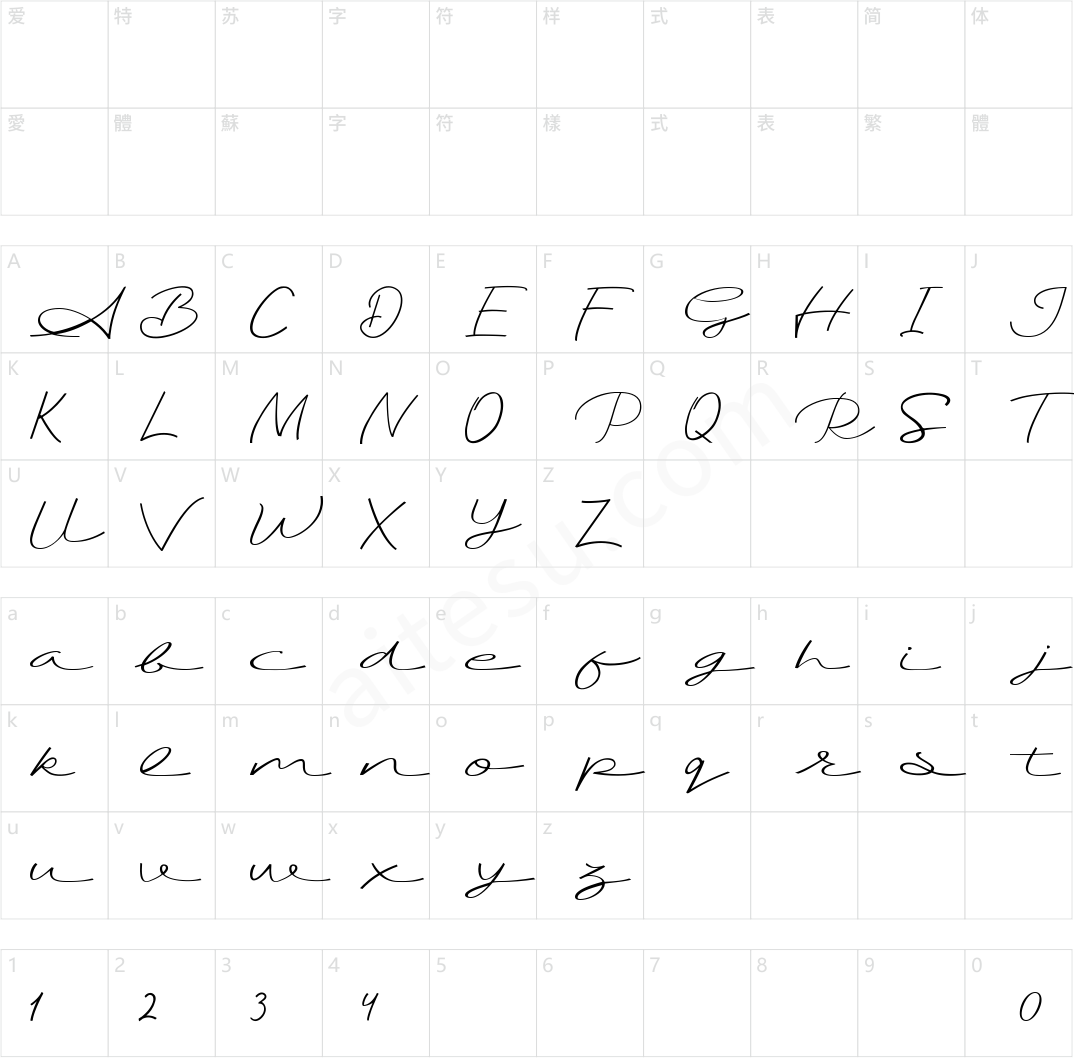 爱 特 苏 字 符 样 式 表 简 体
愛 體 蘇 字 符 樣 式 表 繁 體
A B C D E F G H I J
A B C D E F G H I J
K L M N O P Q R S T
K L M N O P Q R S T
U V W X Y Z
U V W X Y Z
a b c d e f g h i j
a b c d e f g h i j
k l m n o p q r s t
k l m n o p q r s t
u v w x y z
u v w x y z
1 2 3 4 5 6 7 8 9 0
1 2 3 4 0
aitesu.com